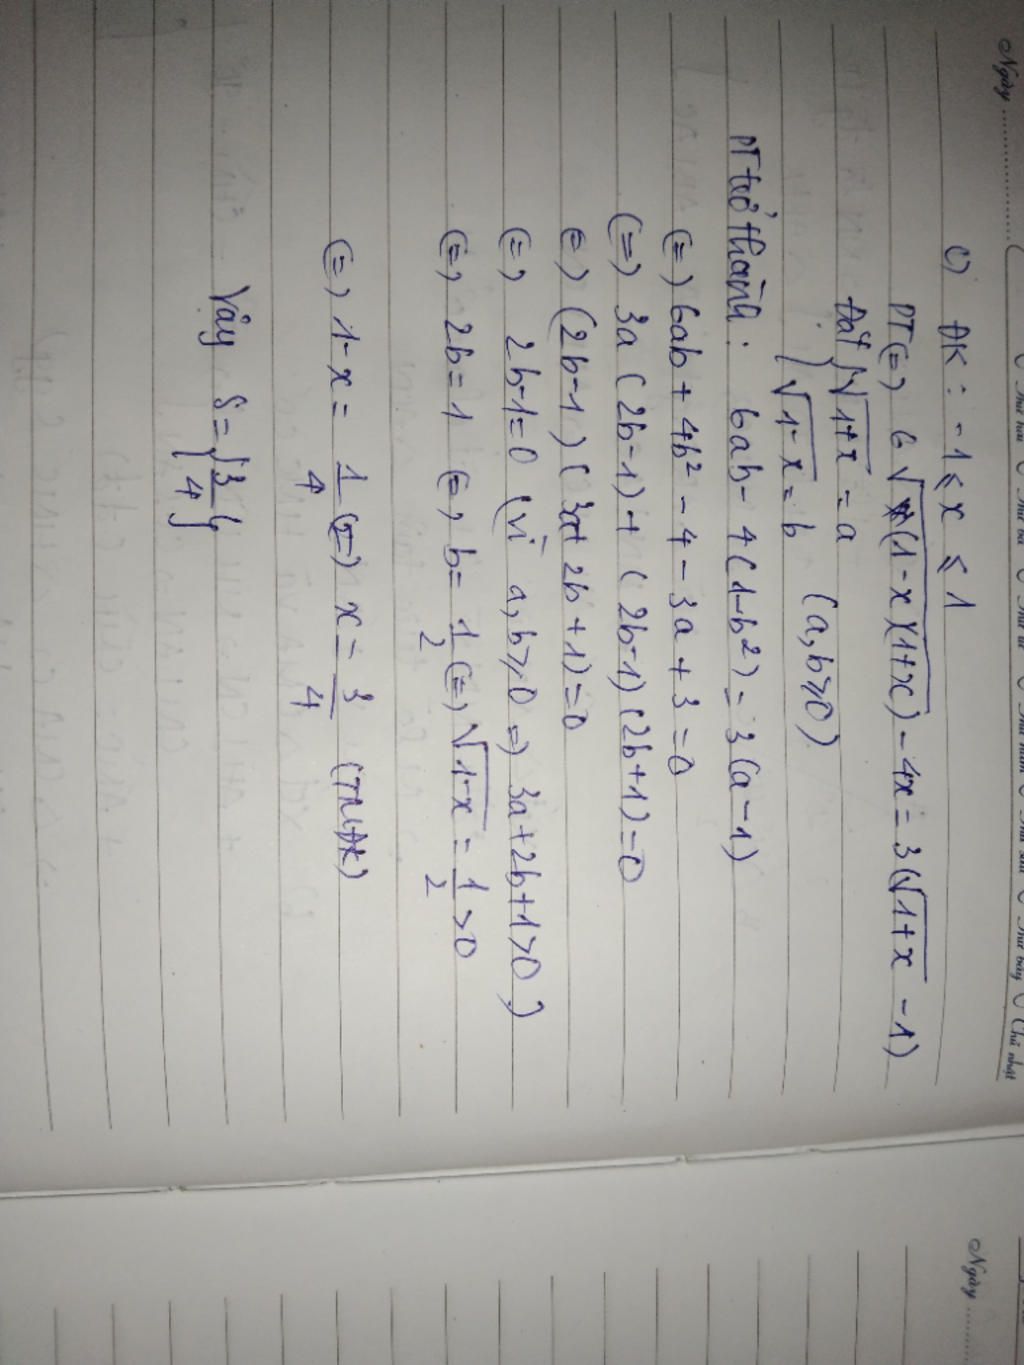 Ngày ....................
Thứ hai Thứ ba Thứ tư Thứ năm Thứ sáu Thứ bảy Chủ nhật
c) ĐK: -1 ≤ x ≤ 1
PT(=) 6√(1-x)(1+x) - 4x = 3(√1+x - 1)
Đặt { √1+x = a
√1-x = b (a, b ≥ 0)
PT trở thành: 6ab - 4(1-b²) = 3(a-1)
(=) 6ab + 4b² - 4 - 3a + 3 = 0
(=) 3a(2b-1) + (2b-1)(2b+1) = 0
(=) (2b-1)(3a+2b+1) = 0
(=) 2b-1=0 (vì a, b ≥ 0 => 3a+2b+1>0)
(=) 2b=1 (=) b = 1/2 (=) √1-x = 1/2 > 0
(=) 1-x = 1/4 (=) x = 3/4 (TMĐK)
Vậy S = {3/4}
Ngày ........